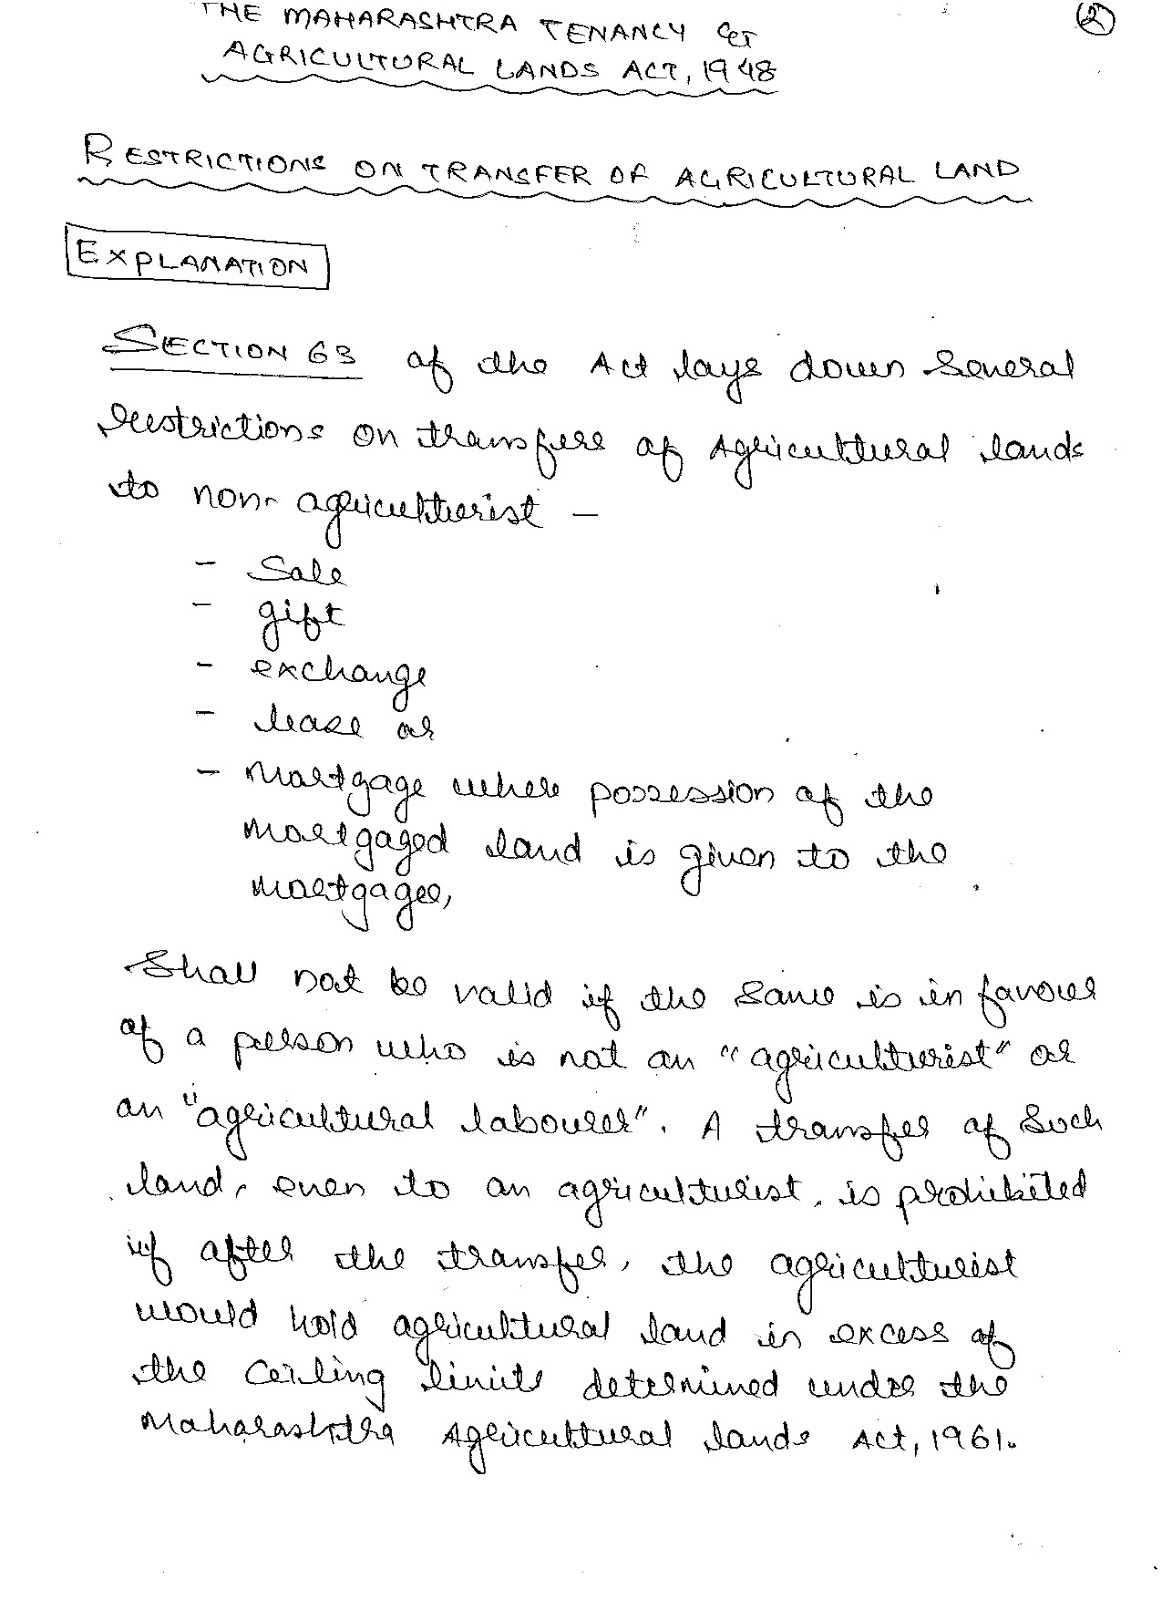 THE MAHARASHTRA TENANCY &
AGRICULTURAL LANDS ACT, 1948
2
RESTRICTIONS ON TRANSFER OF AGRICULTURAL LAND
EXPLANATION
SECTION 63 of the Act lays down several
restrictions on transfers of Agricultural lands
to non-agriculturist –
- Sale
- gift
- exchange
- lease or
- Mortgage where possession of the
mortgaged land is given to the
mortgagee,
Shall not be valid if the same is in favour
of a person who is not an "agriculturist" or
an "agricultural labourer". A transfer of Such
land, even to an agriculturist, is prohibited
if after the transfer, the agriculturist
would hold agricultural land in excess of
the Ceiling limits determined under the
Maharashtra Agricultural lands Act, 1961.